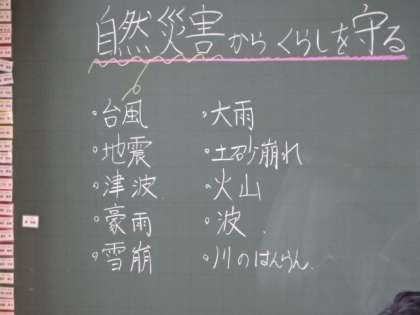 自然災害からくらしを守る
・台風
・地震
・津波
・豪雨
・雪崩
・大雨
・土砂崩れ
・火山
・波
・川のはんらん